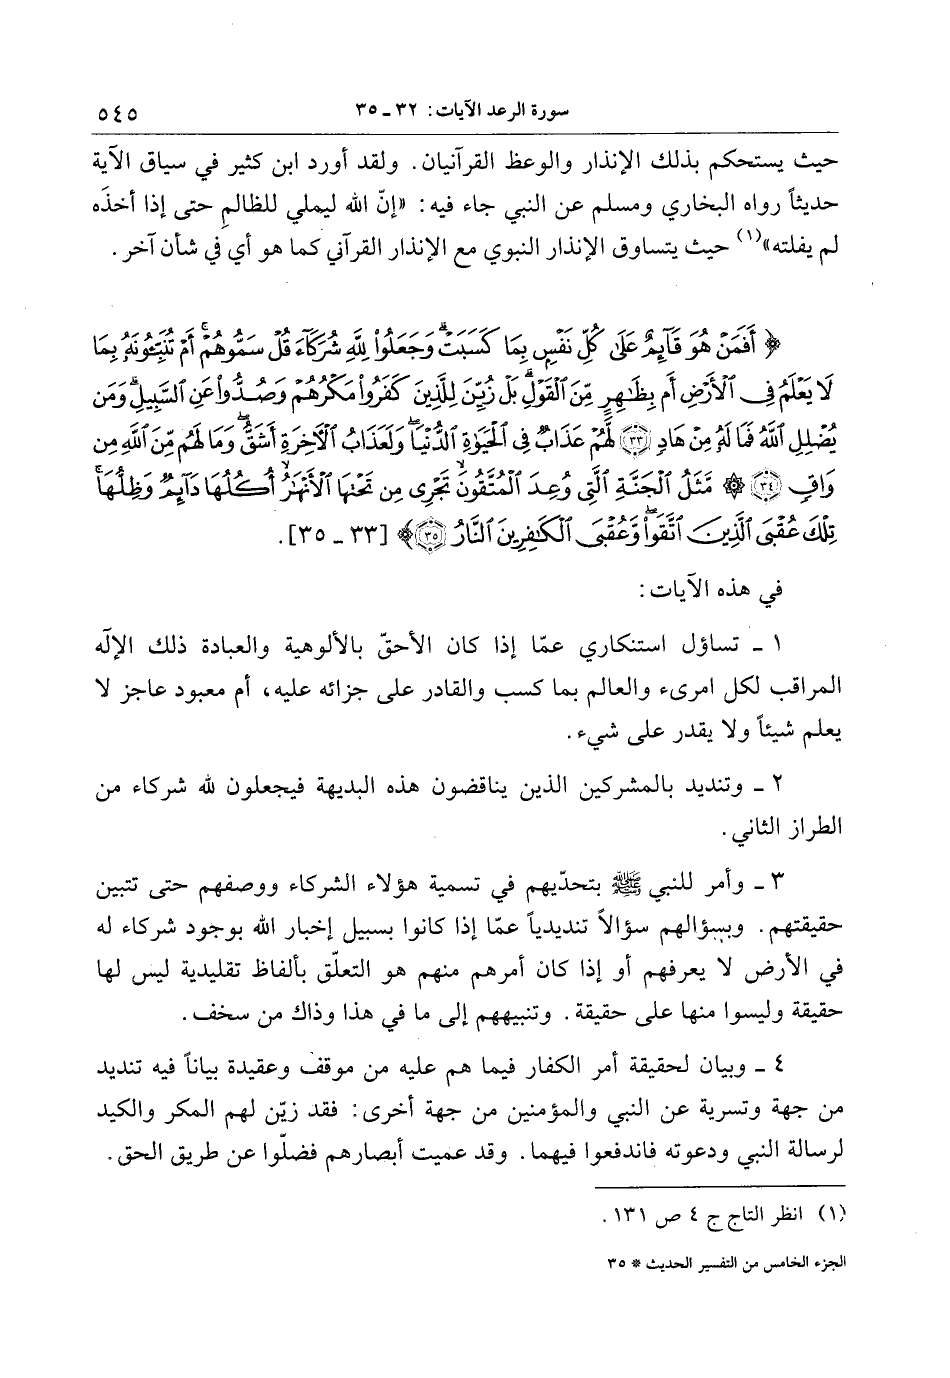 سورة الرعد الآيات: ٣٢ ـ ٣٥ ٥٤٥
حيث يستحكم بذلك الإنذار والوعظ القرآنيان. ولقد أورد ابن كثير في سياق الآية
حديثاً رواه البخاري ومسلم عن النبي جاء فيه: «إنّ الله ليملي للظالمِ حتى إذا أخذَه
لم يفلته»(١) حيث يتساوق الإنذار النبوي مع الإنذار القرآني كما هو أي في شأن آخر.
﴿ أَفَمَنْ هُوَ قَآئِمٌ عَلَىٰ كُلِّ نَفْسٍۭ بِمَا كَسَبَتْۗ وَجَعَلُوا۟ لِلَّهِ شُرَكَآءَ قُلْ سَمُّوهُمْۚ أَمْ تُنَبِّـُٔونَهُۥ بِمَا
لَا يَعْلَمُ فِى ٱلْأَرْضِ أَم بِظَٰهِرٍ مِّنَ ٱلْقَوْلِۗ بَلْ زُيِّنَ لِلَّذِينَ كَفَرُوا۟ مَكْرُهُمْ وَصُدُّوا۟ عَنِ ٱلسَّبِيلِۗ وَمَن
يُضْلِلِ ٱللَّهُ فَمَا لَهُۥ مِنْ هَادٍ ﴿٣٣﴾ لَّهُمْ عَذَابٌ فِى ٱلْحَيَوٰةِ ٱلدُّنْيَاۖ وَلَعَذَابُ ٱلْآخِرَةِ أَشَقُّۖ وَمَا لَهُم مِّنَ ٱللَّهِ مِن
وَاقٍ ﴿٣٤﴾ ۞ مَّثَلُ ٱلْجَنَّةِ ٱلَّتِى وُعِدَ ٱلْمُتَّقُونَۖ تَجْرِى مِن تَحْتِهَا ٱلْأَنْهَٰرُۖ أُكُلُهَا دَآئِمٌ وَظِلُّهَاۚ
تِلْكَ عُقْبَى ٱلَّذِينَ ٱتَّقَوا۟ۖ وَّعُقْبَى ٱلْكَٰفِرِينَ ٱلنَّارُ ﴿٣٥﴾﴾ [٣٣ ـ ٣٥].
في هذه الآيات:
١ ـ تساؤل استنكاري عمّا إذا كان الأحقّ بالألوهية والعبادة ذلك الإلٓه
المراقب لكل امرىء والعالم بما كسب والقادر على جزائه عليه، أم معبود عاجز لا
يعلم شيئاً ولا يقدر على شيء.
٢ ـ وتنديد بالمشركين الذين يناقضون هذه البديهة فيجعلون لله شركاء من
الطراز الثاني.
٣ ـ وأمر للنبي ﷺ بتحدّيهم في تسمية هؤلاء الشركاء ووصفهم حتى تتبين
حقيقتهم. وبسؤالهم سؤالاً تنديدياً عمّا إذا كانوا بسبيل إخبار الله بوجود شركاء له
في الأرض لا يعرفهم أو إذا كان أمرهم منهم هو التعلّق بألفاظ تقليدية ليس لها
حقيقة وليسوا منها على حقيقة. وتنبيههم إلى ما في هذا وذاك من سخف.
٤ ـ وبيان لحقيقة أمر الكفار فيما هم عليه من موقف وعقيدة بياناً فيه تنديد
من جهة وتسرية عن النبي والمؤمنين من جهة أخرى: فقد زيّن لهم المكر والكيد
لرسالة النبي ودعوته فاندفعوا فيهما. وقد عميت أبصارهم فضلّوا عن طريق الحق.
(١) انظر التاج ج ٤ ص ١٣١.
الجزء الخامس من التفسير الحديث * ٣٥